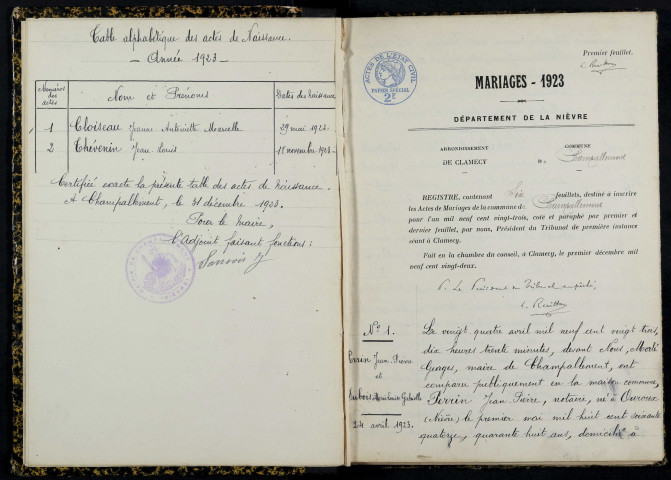 Table alphabétique des actes de Naissance.
— Année 1923 —
Numéros des actes
Nom et Prénoms
Dates des naissances
1 Cloiseau Jeanne Antoinette Marcelle 29 mai 1923
2 Thévenin Jean Louis 11 novembre 1923
Certifiée exacte la présente table des actes de naissance.
A Champallement, le 31 décembre 1923.
Pour le maire,
l'Adjoint faisant fonctions :
Premier feuillet.
ACTES DE L'ETAT CIVIL
PAPIER SPECIAL
2F
MARIAGES - 1923
DÉPARTEMENT DE LA NIÈVRE
ARRONDISSEMENT
DE CLAMECY
COMMUNE
de Champallement
REGISTRE, contenant Six feuillets, destiné à inscrire
les Actes de Mariages de la commune de Champallement
pour l'an mil neuf cent vingt-trois, coté et paraphé par premier et
dernier feuillet, par nous, Président du Tribunal de première instance
séant à Clamecy.
Fait en la chambre du conseil, à Clamecy, le premier décembre mil
neuf cent vingt-deux.
P. Le Président du Tribunal empêché,
N° 1.
Perrin Jean Pierre
et
Dubois Marie Louise Gabrielle
24 avril 1923.
Le vingt quatre avril mil neuf cent vingt trois,
dix heures trente minutes, devant Nous,
Georges, maire de Champallement, ont
comparu publiquement en la maison commune,
Perrin Jean Pierre, notaire, né à Ouroux
(Nièvre) le premier mai mil huit cent soixante
quatorze, quarante huit ans, domicilié à